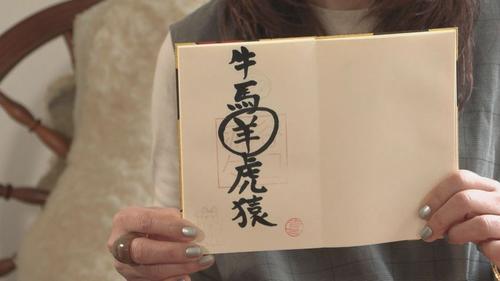 牛
馬
羊
虎
猿